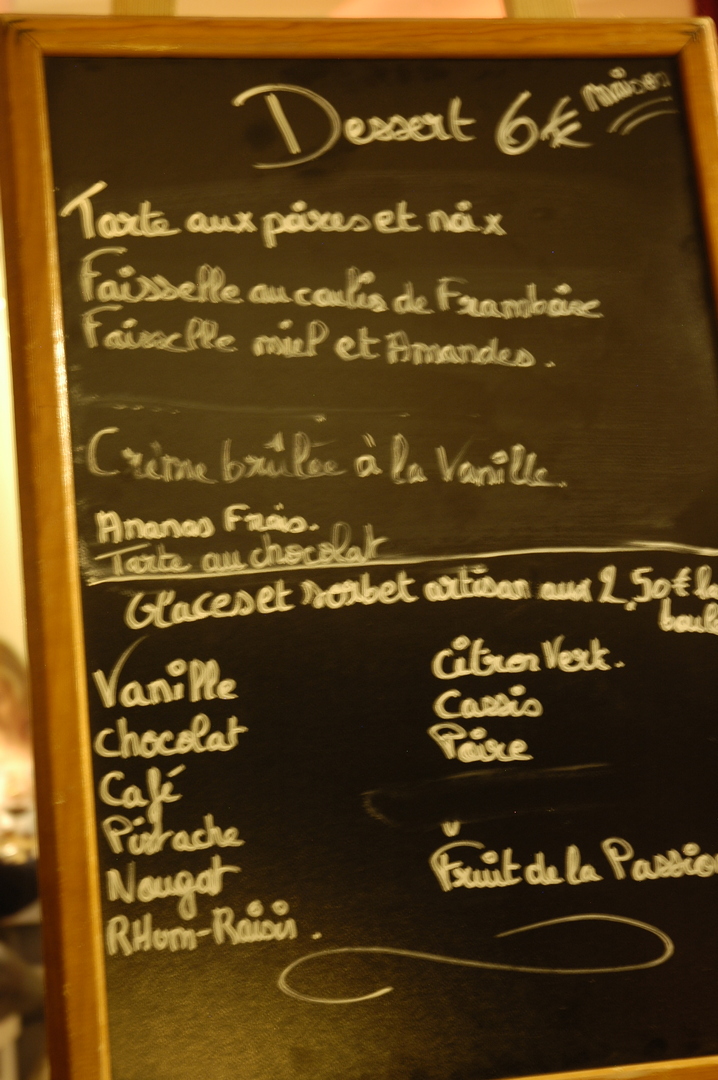 Dessert 6€ maison
Tarte aux poires et noix
Faisselle au coulis de Framboise
Faisselle miel et Amandes.
Crème brûlée à la Vanille.
Ananas Frais.
Tarte au chocolat
Glaces et sorbet artisan aux 2,50€ la
boule
Vanille
Chocolat
Café
Pistache
Nougat
RHum-Raisin.
Citron Vert.
Cassis
Poire
Fruit de la Passion